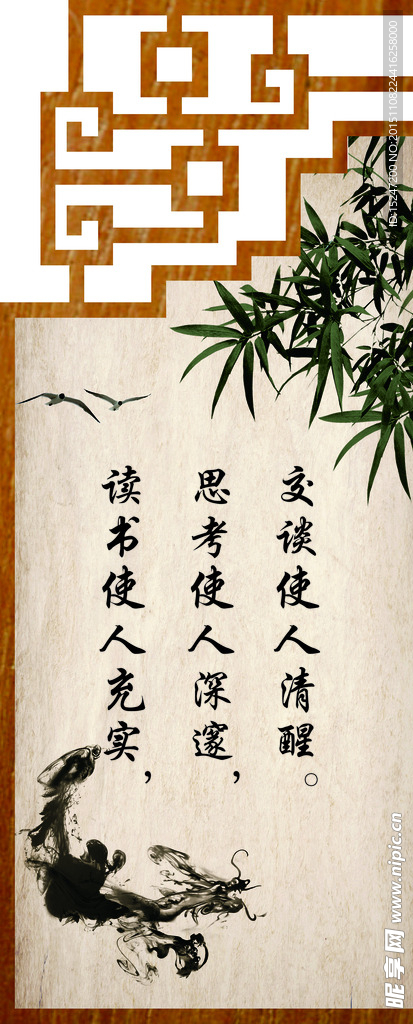 读书使人充实，
思考使人深邃，
交谈使人清醒。
ID:15247200 NO:20151108224416258000
昵享网 www.nipic.cn